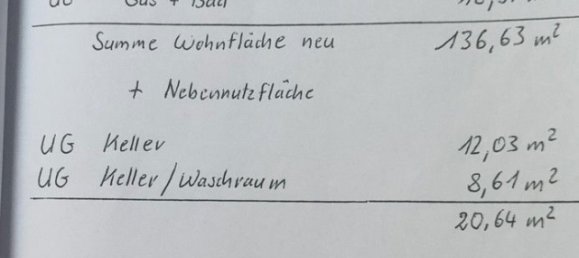 Summe Wohnfläche neu 136,63 m²
+ Nebennutzfläche
UG Keller 12,03 m²
UG Keller/Waschraum 8,61 m²
20,64 m²